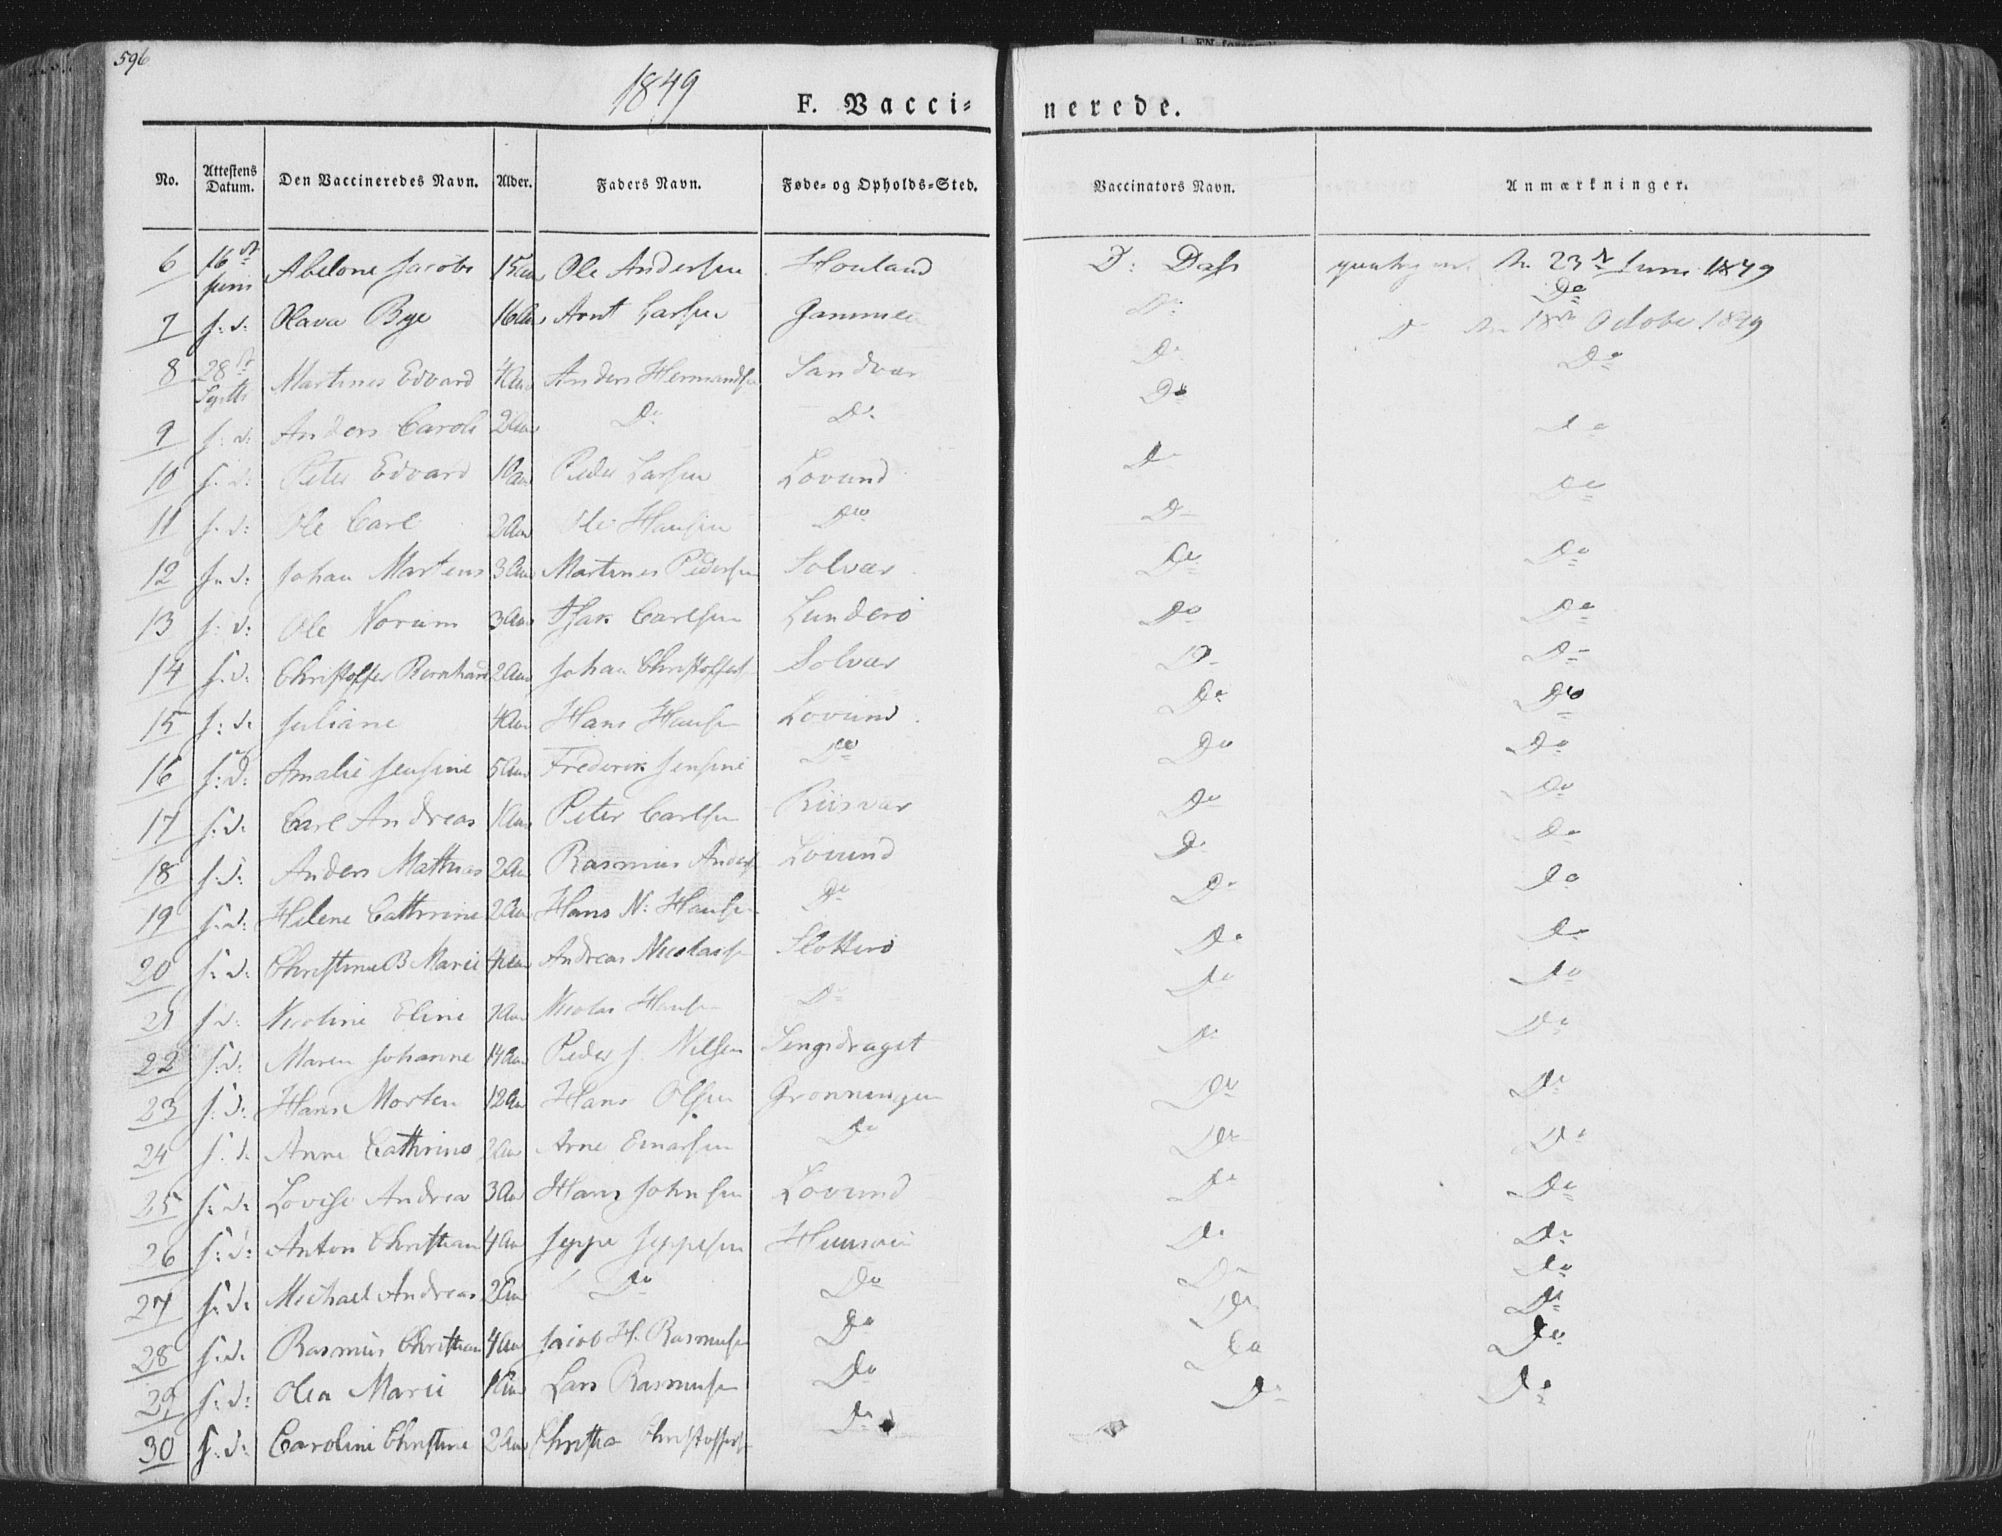 596
1849
F. Vacci- nerede.
No. Attestens Datum. Den Vaccineredes Navn. Alder. Faders Navn. Føde- og Opholds-Sted. Vaccinators Navn. Anmærkninger.
6 16de Juni Abelone Jacobs 15 Aar Ole Andersen Houland D: Dass 23de Juni 1849
7 s: d: Olava Bye 16 Aar Arnt Larsen Do Do
8 28de Martines Edvard 4 Aar Anders Hermandsen Sandvær Do D 18de October 1849
9 s: d: Anders Carols 2 Aar Do Do Do Do
10 s: d: Peter Edvard Peder Larsen Lovund Do Do
11 s: d: Ole Carl 2 Aar Ole Hansen Do Do Do
12 s: d: Johan Martens 3 Aar Martines Pedersen Solvær Do Do
13 s: d: Ole Norum 3 Aar Isak Carlsen Lunderø Do Do
14 s: d: Christoffer Bernhard 2 Aar Johan Christoffers Solvær Do Do
15 s: d: Juliane 4 Aar Hans Hansen Lovund Do Do
16 s: d: Amalie Jensine 5 Aar Frederik Do Do Do
17 s: d: Carl Andreas 1 Aar Peter Carlsen Do Do
18 s: d: Anders Mathias 2 Aar Rasmus Anders Lovund Do Do
19 s: d: Helene Cathrine 2 Aar Hans N: Hansen Do Do Do
20 s: d: Christine B Marie 4 Aar Andreas Nicolaisen Slotterø Do Do
21 s: d: Nicoline Eline Aar Nicolai Hansen Do Do Do
22 s: d: Maren Johanne 14 Aar Peder J. Nilsen Do Do
23 s: d: Hans Morten 12 Aar Hans Olsen Grønningen Do Do
24 s: d: Anne Cathrine Aar Arne Einarsen Do Do Do
25 s: d: Lovise Andrea 3 Aar Hans Johnsen Lovund Do Do
26 s: d: Anton Christian 4 Aar Jeppe Jeppesen Do Do
27 s: d: Michael Andreas 2 Aar Do Do Do Do
28 s: d: Rasmus Christian 4 Aar Jacob H. Rasmusen Do Do Do
29 s: d: Olea Marie 1 Aar Lars Rasmusen Do Do Do
30 s: d: Caroline Christine 2 Aar Christoffersen Do Do Do